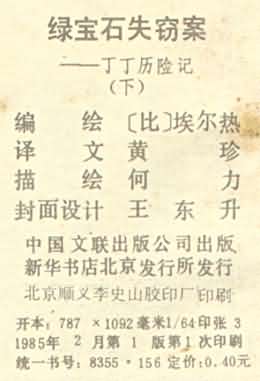 绿宝石失窃案
——丁丁历险记
(下)
编 绘 〔比〕埃尔热
译 文 黄 珍
描 绘 何 力
封面设计 王 东 升
中国文联出版公司出版
新华书店北京发行所发行
北京顺义李史山胶印厂印刷
开本:787 ×1092毫米1/64印张 3
1985年 2 月第 1 版第1次印刷
统一书号:8355·156 定价:0.40元